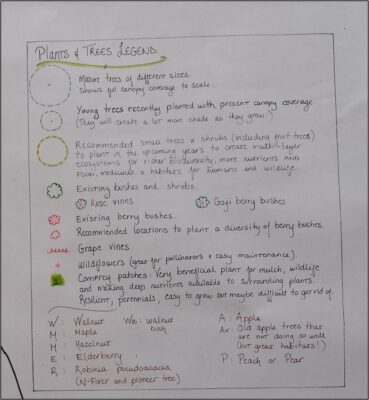 PLANTS & TREES LEGEND
Mature trees of different sizes.
Shows full canopy coverage to scale.
Young trees recently planted with present canopy coverage
(They will create a lot more shade as they grow.)
Recommended small trees & shrubs (including fruit trees)
to plant in the upcoming years to create multi-layer
ecosystems for richer biodiversity, more nutrients into
FOOD, medicines & habitats for humans and wildlife.
Existing bushes and shrubs.
Rose vines
Goji berry bushes
Existing berry bushes.
Recommended locations to plant a diversity of berry bushes.
Grape vines
Wildflowers (great for pollinators & easy maintenance).
Comfrey patches: Very beneficial plant for mulch, wildlife
and making deep nutrients available to surrounding plants.
Resilient, perennials, easy to grow but maybe difficult to get rid of.
W: Walnut
WB: Walnut
bush
A: Apple
M: Maple
Ax: Old apple trees that
are not doing so well
(but great habitats!)
H: Hazelnut
E: Elderberry
R: Robinia pseudoacacia
(N-Fixer and pioneer tree)
P: Peach or Pear